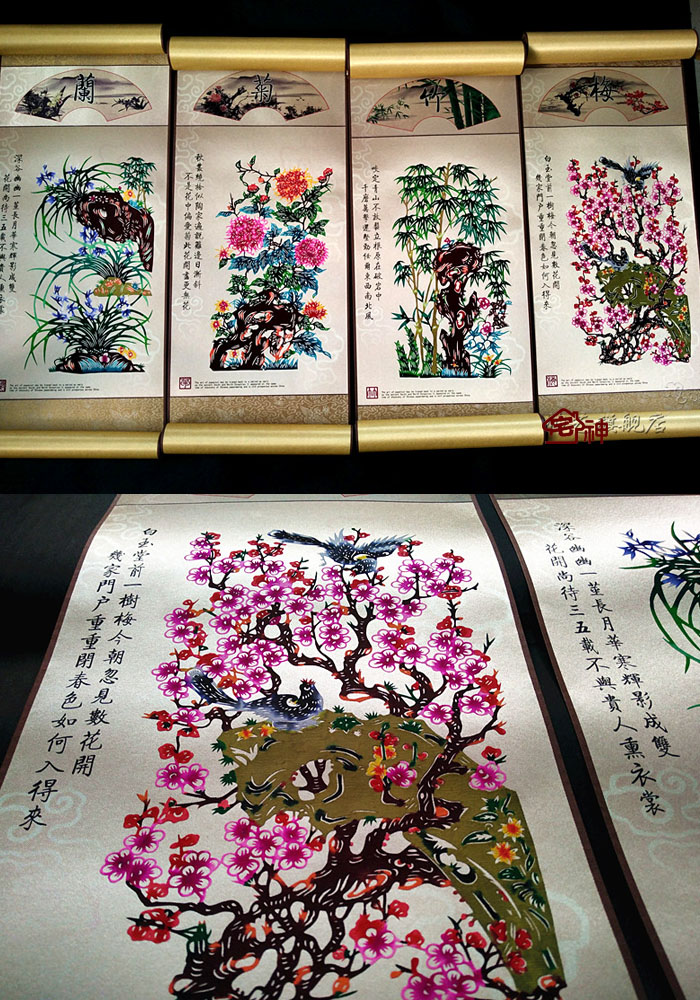 蘭
深谷幽幽一菫長月華寒輝影成雙
花開尚待三五載不與貴人熏衣裳
菊
秋叢繞捨似陶家遍觀籬邊日漸斜
不是花中偏愛菊此花開盡更無花
竹
咬定青山不放鬆立根原在破岩中
千磨萬擊還堅勁任爾東西南北風
梅
白玉堂前一樹梅今朝忽見數花開
幾家門戶重重閉春色如何入得來
宅神旗舰店
白玉堂前一樹梅今朝忽見數花開
幾家門戶重重閉春色如何入得來
深谷幽幽一菫長月華寒輝影成雙
花開尚待三五載不與貴人熏衣裳